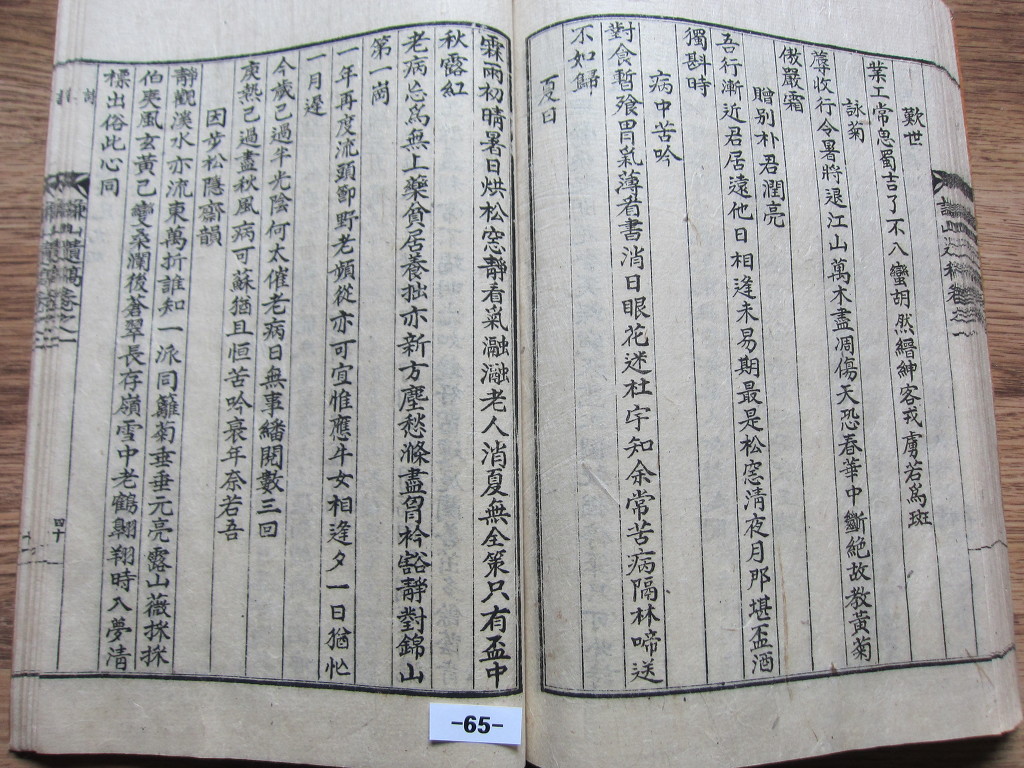 歎世
業工常思蜀吉了不入蠻胡然縉紳客戎虜若爲班
詠菊
蓐收行令暑將退江山萬木盡凋傷天恐春華中斷絶故教黃菊
傲嚴霜
贈别朴君潤亮
吾行漸近君居遠他日相逢未易期最是松窓清夜月那堪盃酒
獨斟時
病中苦吟
對食暫飱胃氣薄看書消日眼花迷杜宇知余常苦病隔林啼送
不如歸
夏日
霖雨初晴暑日烘松窓靜看氣瀜瀜老人消夏無全策只有盃中
秋露紅
老病忘爲無上藥貧居養拙亦新方塵愁滌盡胷衿豁靜對錦山
第一崗
一年再度流頭鄙野老願從亦可宜惟應牛女相逢夕一日猶忙
一月遲
今歲已過半光陰何太催老病日無事繙閱數三回
庚熱已過盡秋風病可蘇猶且恒苦吟衰年奈若吾
因步松隱齋韻
靜觀淡水亦流東萬折誰知一派同籬菊垂垂元亮露山薇採採
伯夷風玄黃已變桑瀾後蒼翠長存嶺雪中老鶴翺翔時入夢清
標出俗此心同
詩
遺稿卷之一
四十
-65-